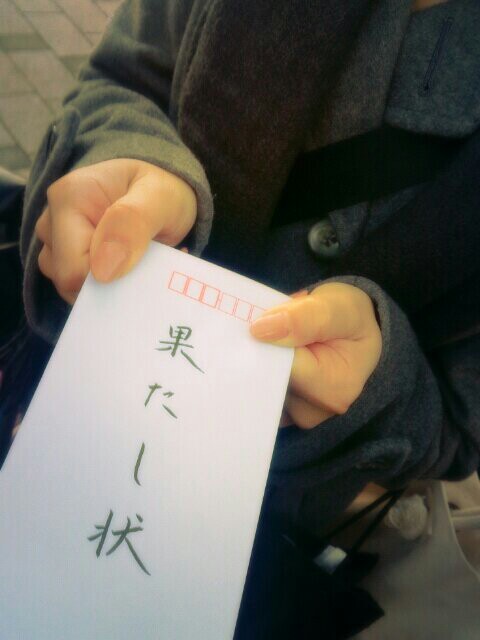 果たし状